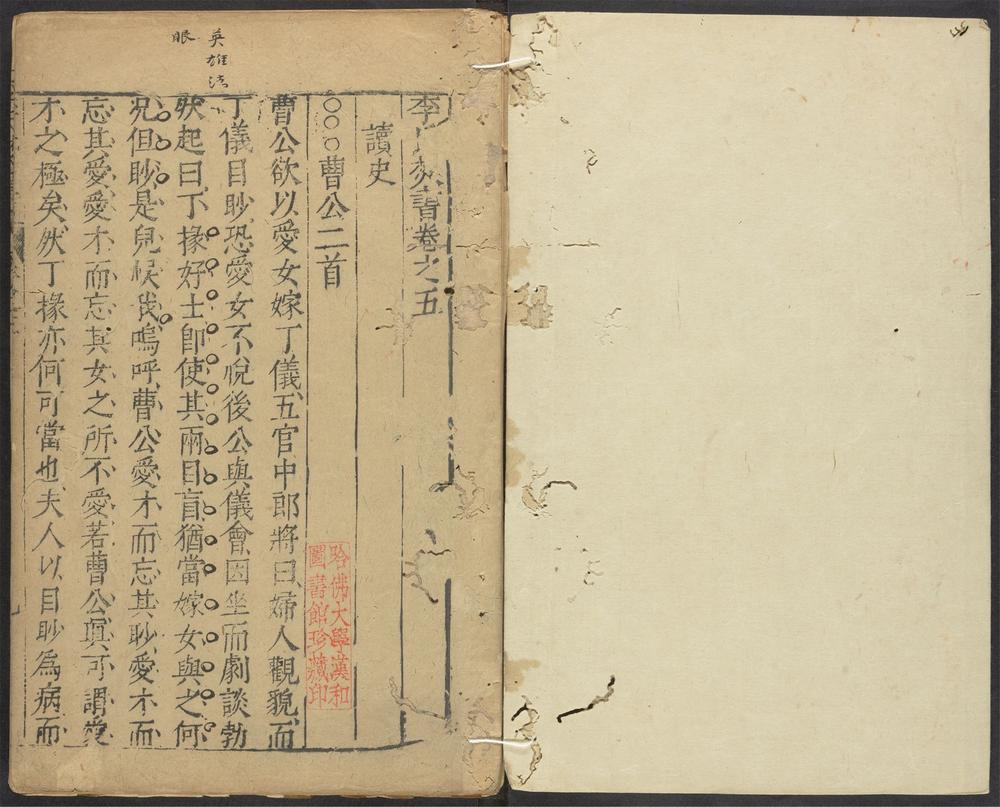 李氏焚書卷之五
讀史
曹公二首
曹公欲以愛女嫁丁儀五官中郎將曰婦人觀貌而
丁儀目眇恐愛女不悅後公與儀會因坐而劇談勃
然起曰丁掾好士即使其兩目盲猶當嫁女與之何
況但眇是兒悞我嗚呼曹公愛才而忘其眇愛才而
忘其愛愛才而忘其女之所不愛若曹公真可謂愛
才之極矣然丁掾亦何可當也夫人以目眇為病而
英雄
眼
哈佛大學漢和
圖書館珍藏印